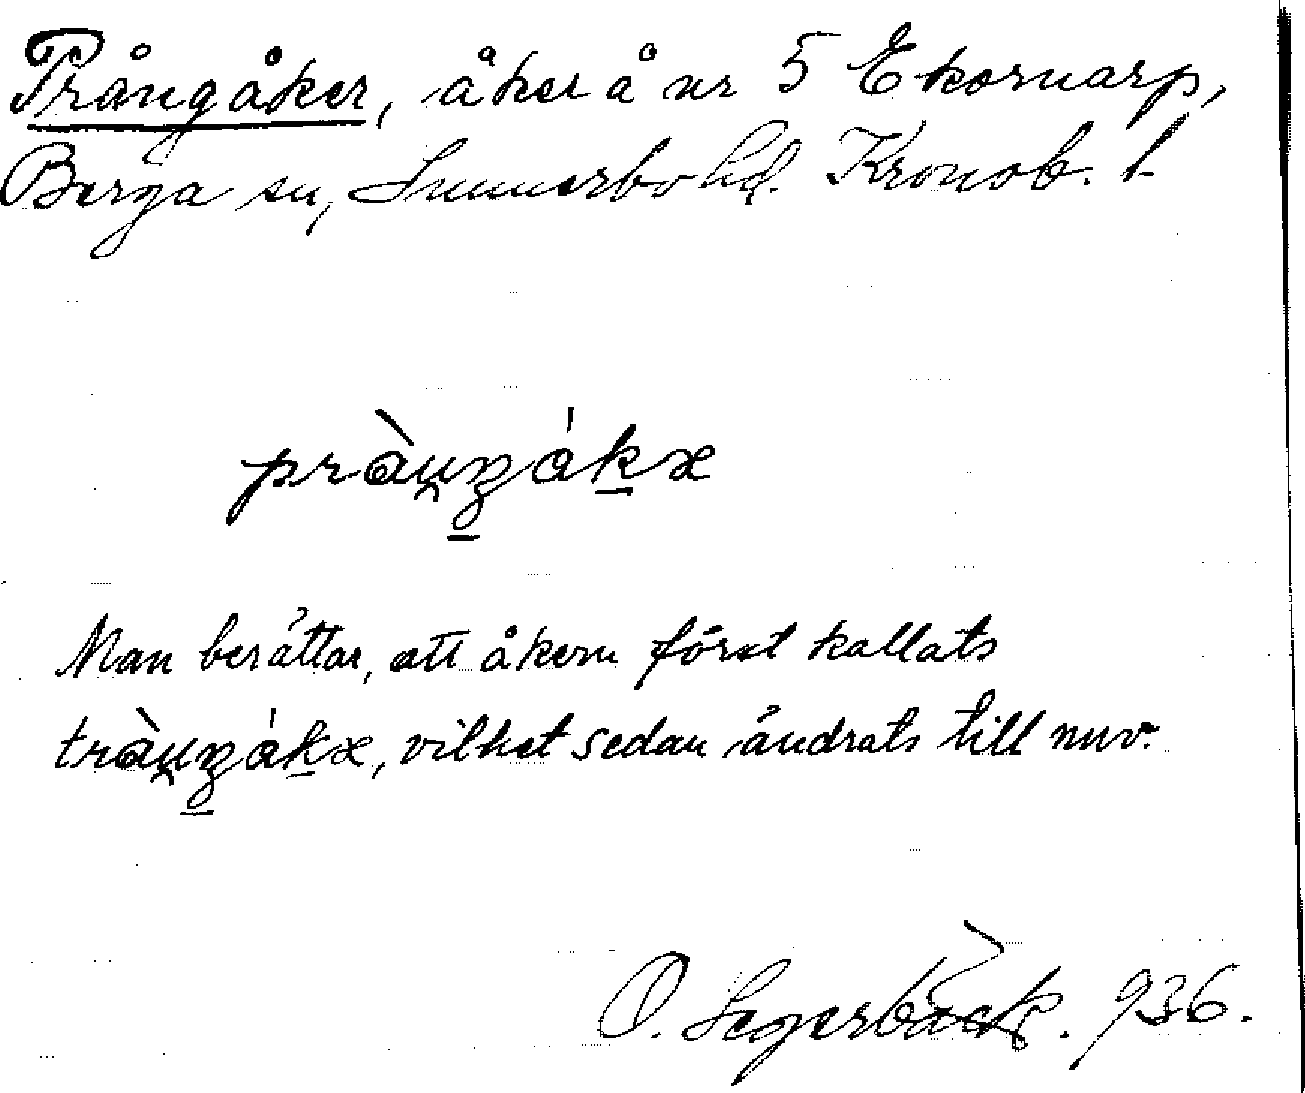 Prångåker, åker å nr 5 Ekornarp,
Berga sn, Sunnerbo hd. Kronob. l.
pràųŋåkx
Man berättar, att åkern först kallats
tràųŋåkx, vilket sedan ändrats till nuv.
O. Segerbäck. 936.